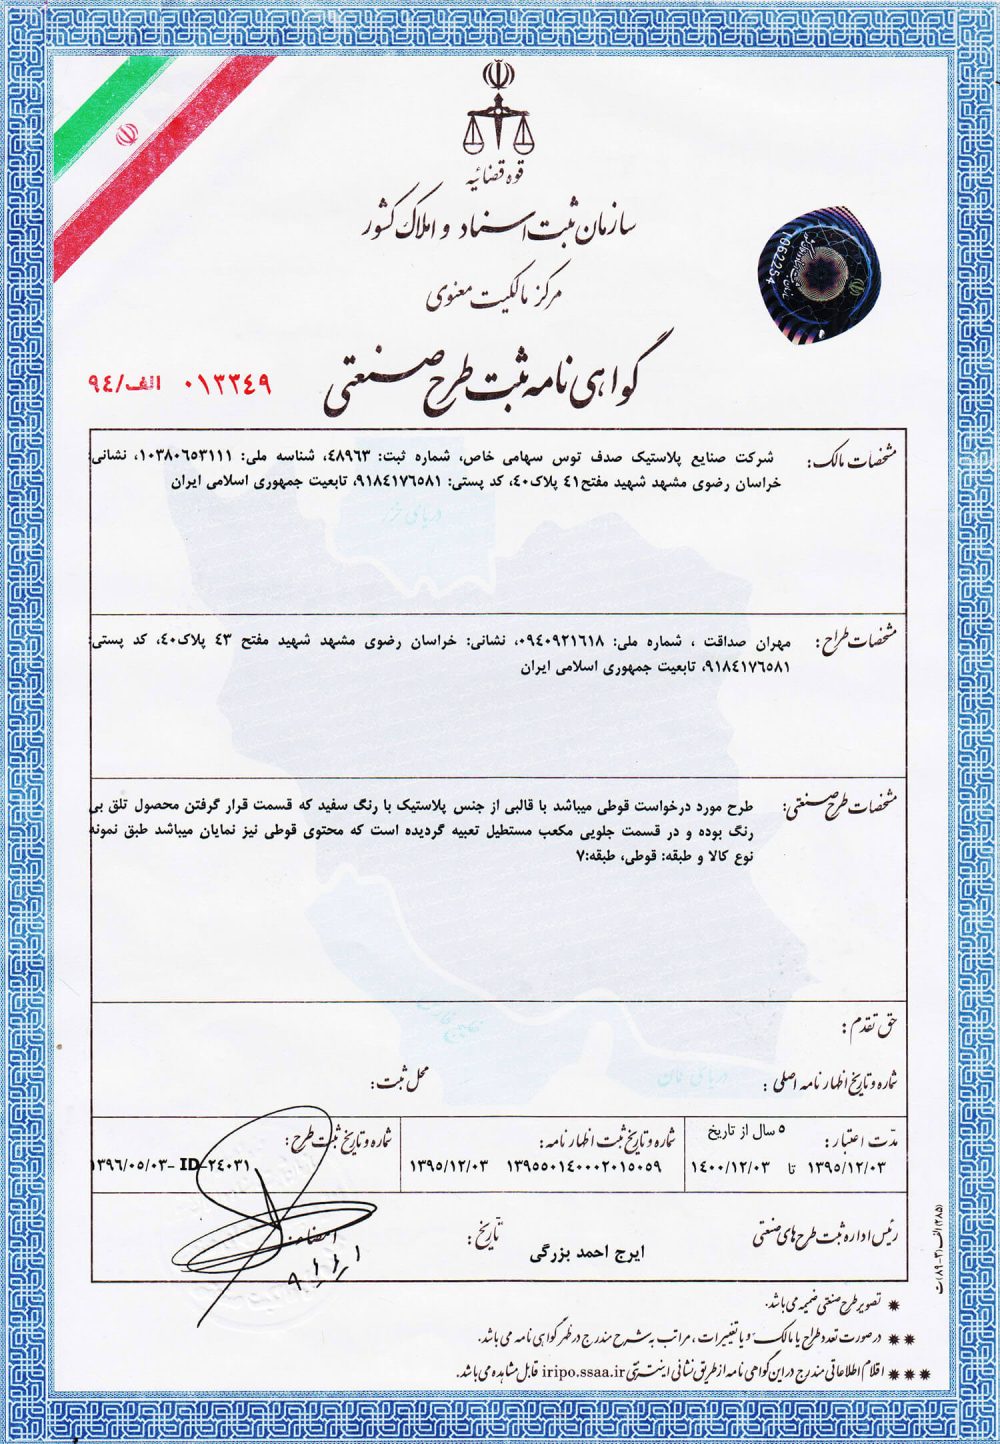 قوه قضائیه
سازمان ثبت اسناد و املاک کشور
مرکز مالکیت معنوی
گواهی نامه ثبت طرح صنعتی
۰۱۳۳۴۹ الف/۹۴
062254
مشخصات مالک: شرکت صنایع پلاستیک صدف توس سهامی خاص، شماره ثبت: ۴۸۹۶۳، شناسه ملی: ۱۰۳۸۰۶۵۳۱۱۱، نشانی:
خراسان رضوی مشهد شهید مفتح۴۱ پلاک۴۰، کد پستی: ۹۱۸۴۱۷۶۵۸۱، تابعیت جمهوری اسلامی ایران
دریای خزر
مشخصات طراح: مهران صداقت ، شماره ملی: ۰۹۴۰۹۲۱۶۱۸، نشانی: خراسان رضوی مشهد شهید مفتح ۴۳ پلاک۴۰، کد پستی:
۹۱۸۴۱۷۶۵۸۱، تابعیت جمهوری اسلامی ایران
مشخصات طرح صنعتی: طرح مورد درخواست قوطی میباشد با قالبی از جنس پلاستیک با رنگ سفید که قسمت قرار گرفتن محصول تلق بی
رنگ بوده و در قسمت جلویی مکعب مستطیل تعبیه گردیده است که محتوی قوطی نیز نمایان میباشد طبق نمونه
نوع کالا و طبقه: قوطی، طبقه:۷
خلیج فارس
حق تقدم:
دریای عمان
شماره و تاریخ اظهارنامه اصلی: محل ثبت:
مدت اعتبار: ۵ سال از تاریخ
۱۳۹۵/۱۲/۰۳ تا ۱۴۰۰/۱۲/۰۳
شماره و تاریخ ثبت اظهارنامه:
۱۳۹۵۵۰۱۴۰۰۰۲۰۱۵۰۵۹ ۱۳۹۵/۱۲/۰۳
شماره و تاریخ ثبت طرح:
ID-۲۴۰۳۱ -۱۳۹۶/۰۵/۰۳
رئیس اداره ثبت طرح های صنعتی
ایرج احمد بزرگی
تاریخ:
امضاء:
(۲۸۵) الف(۳-۸۹)ت
* تصویر طرح صنعتی ضمیمه می باشد.
** در صورت تعدد طراح یا مالک و یا تغییرات، مراتب به شرح مندرج در ظهر گواهی نامه می باشد.
*** اقلام اطلاعاتی مندرج در این گواهی نامه از طریق نشانی اینترنتی iripo.ssaa.ir قابل مشاهده می باشد.